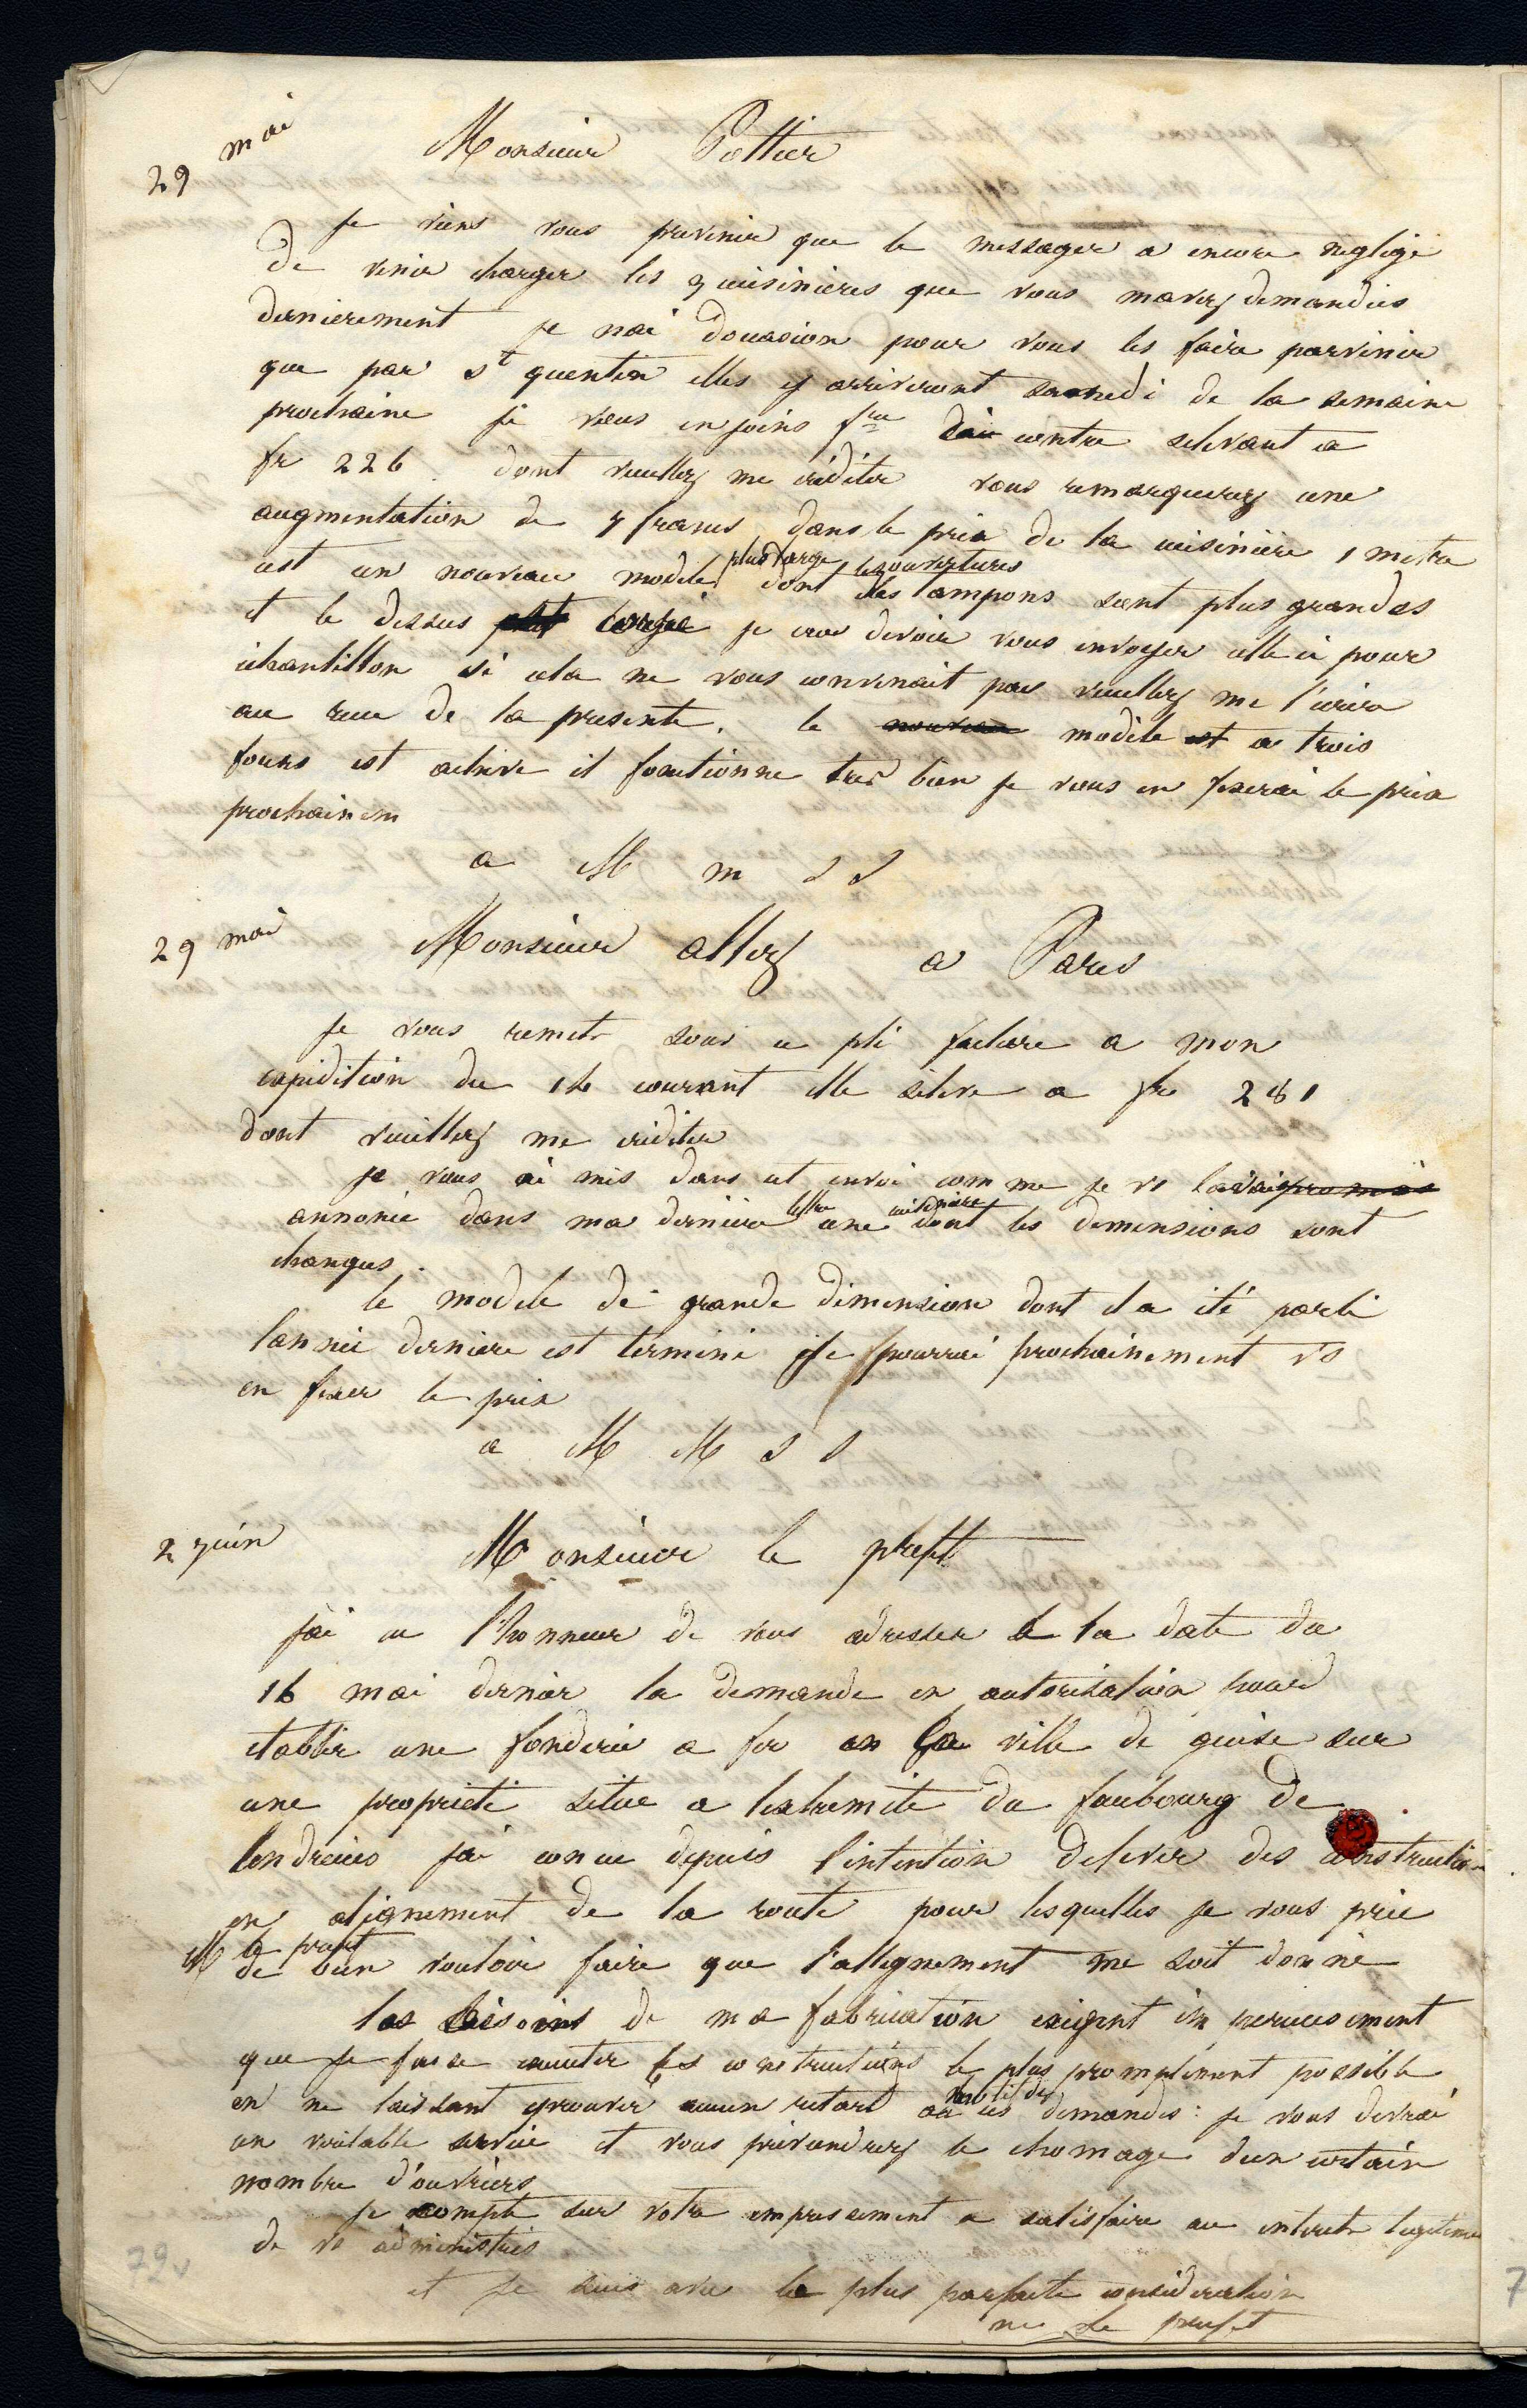 29 mai
Monsieur Pottier
je viens vous prevenir que le messager a encore negligé
de venir charger les 3 cuisinieres que vous mavez demandées
dernierement je nai doccasion pour vous les faire parvenir
que par st quentin elles y arriveront samedi de la semaine
prochaine je vous en joins fre ci contre selevant a
fr 226. dont veuillez me créditer vous remarquerez une
augmentation de 7 francs dans le prix de la cuisinière 1 metre
plus large les ouvertures
cest un nouveau modele dont des tampons sont plus grandes
et le dessus plus large je croi devoir vous envoyer celle ci pour
échantillon si cela ne vous convenait pas veuillez me l'ecrire
au recu de la presente. le nouveau modèle est a trois
fours est achevé il fonctionne tres bien je vous en fixerai le prix
prochainem
a M m s s
29 mai
Monsieur allez a Paris
je vous remets sous ce pli facture a mon
expedition du 16 courant elle seleve a fr 281
dont veuillez me créditer
je vous ai mis dans cet envoi comme je vs lavais promis
lettre cuisiniere
annoncé dans ma derniere une dont les dimensions sont
changees.
le modele de grande dimension dont il a été parlé
lannée derniere est terminé je pourrai prochainement vs
en fixer le prix
a M M s s
2 juin
Monsieur le prefet
jai eu l'honneur de vous adresser a la date du
16 mai dernier la demande en autorisation pour
etablir une fonderie a fer en la ville de guise sur
une proprieté située a lextremité du faubourg de
landrecies jai concu depuis l'intention delever des constructions
en alignement de la route pour lesquelles je vous prie
M le prefet
de bien vouloir faire que l'allignement me soit donné
les besoins de ma fabrication exigent imperieusement
que je fasse executer les constructions le plus promptement possible
en ne laissant eprouver aucun retard a ces demandes: je vous devrai
un veritable service et vous previendrez le chomage dun certain
nombre d'ouvriers
je compte sur votre empressement a satisfaire au interets legitimes
de vs administrés
et je suis avec la plus parfaite consideration
mr le prefet
79v
7